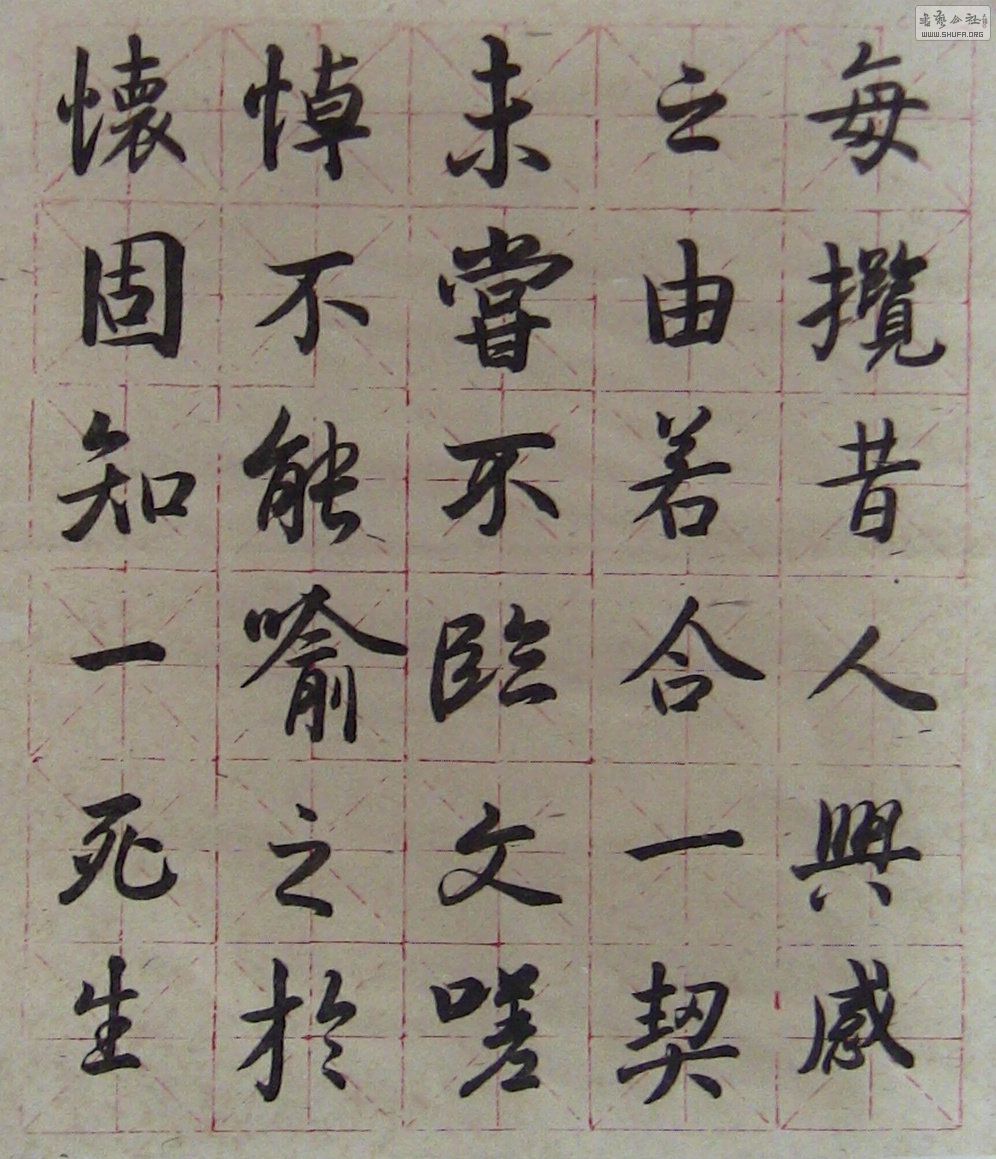 每攬昔人興感
之由若合一契
未嘗不臨文嗟
悼不能喻之於
懷固知一死生
WWW.SHUFA.ORG